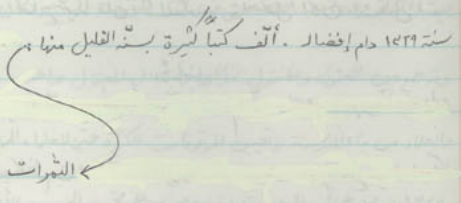 سنة ١٣٢٩ دام إفضاله . ألّف كتباً كثيرة بسنّه القليل منها :
الثمرات